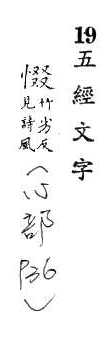 19五經文字
惙竹劣反
見詩風
(心部
P36)